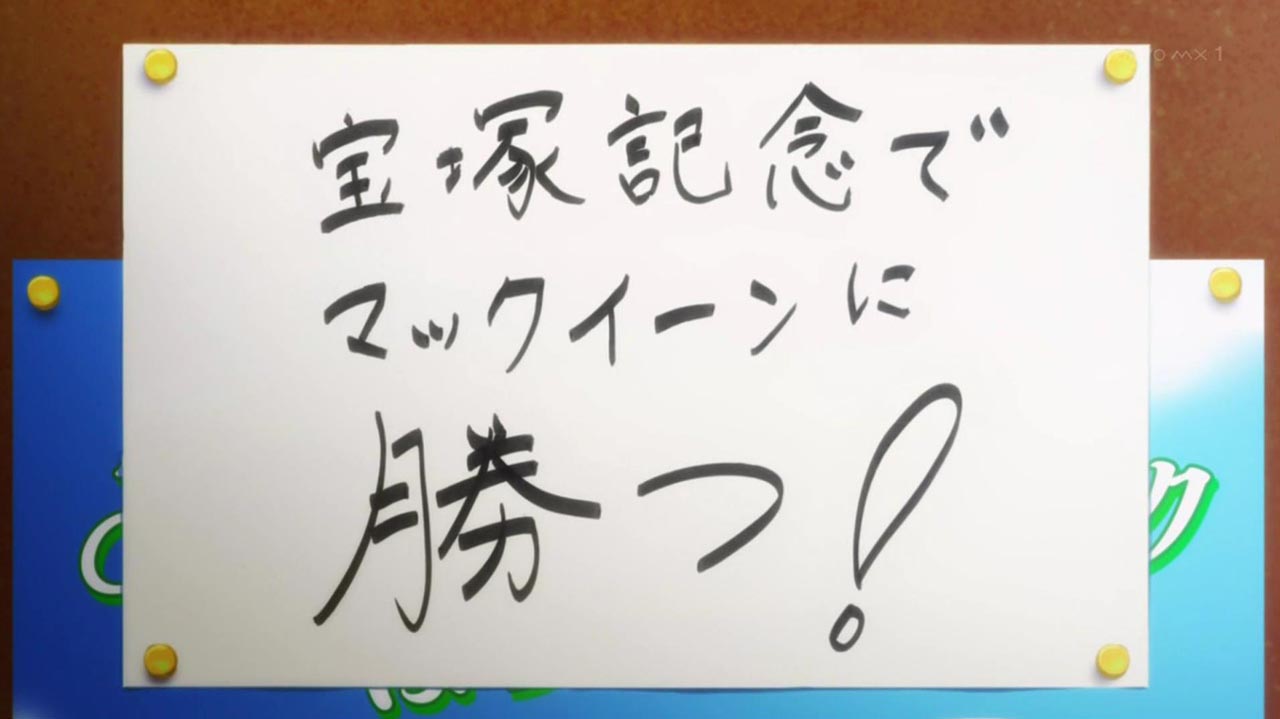 宝塚記念で
マックイーンに
勝つ!
ク